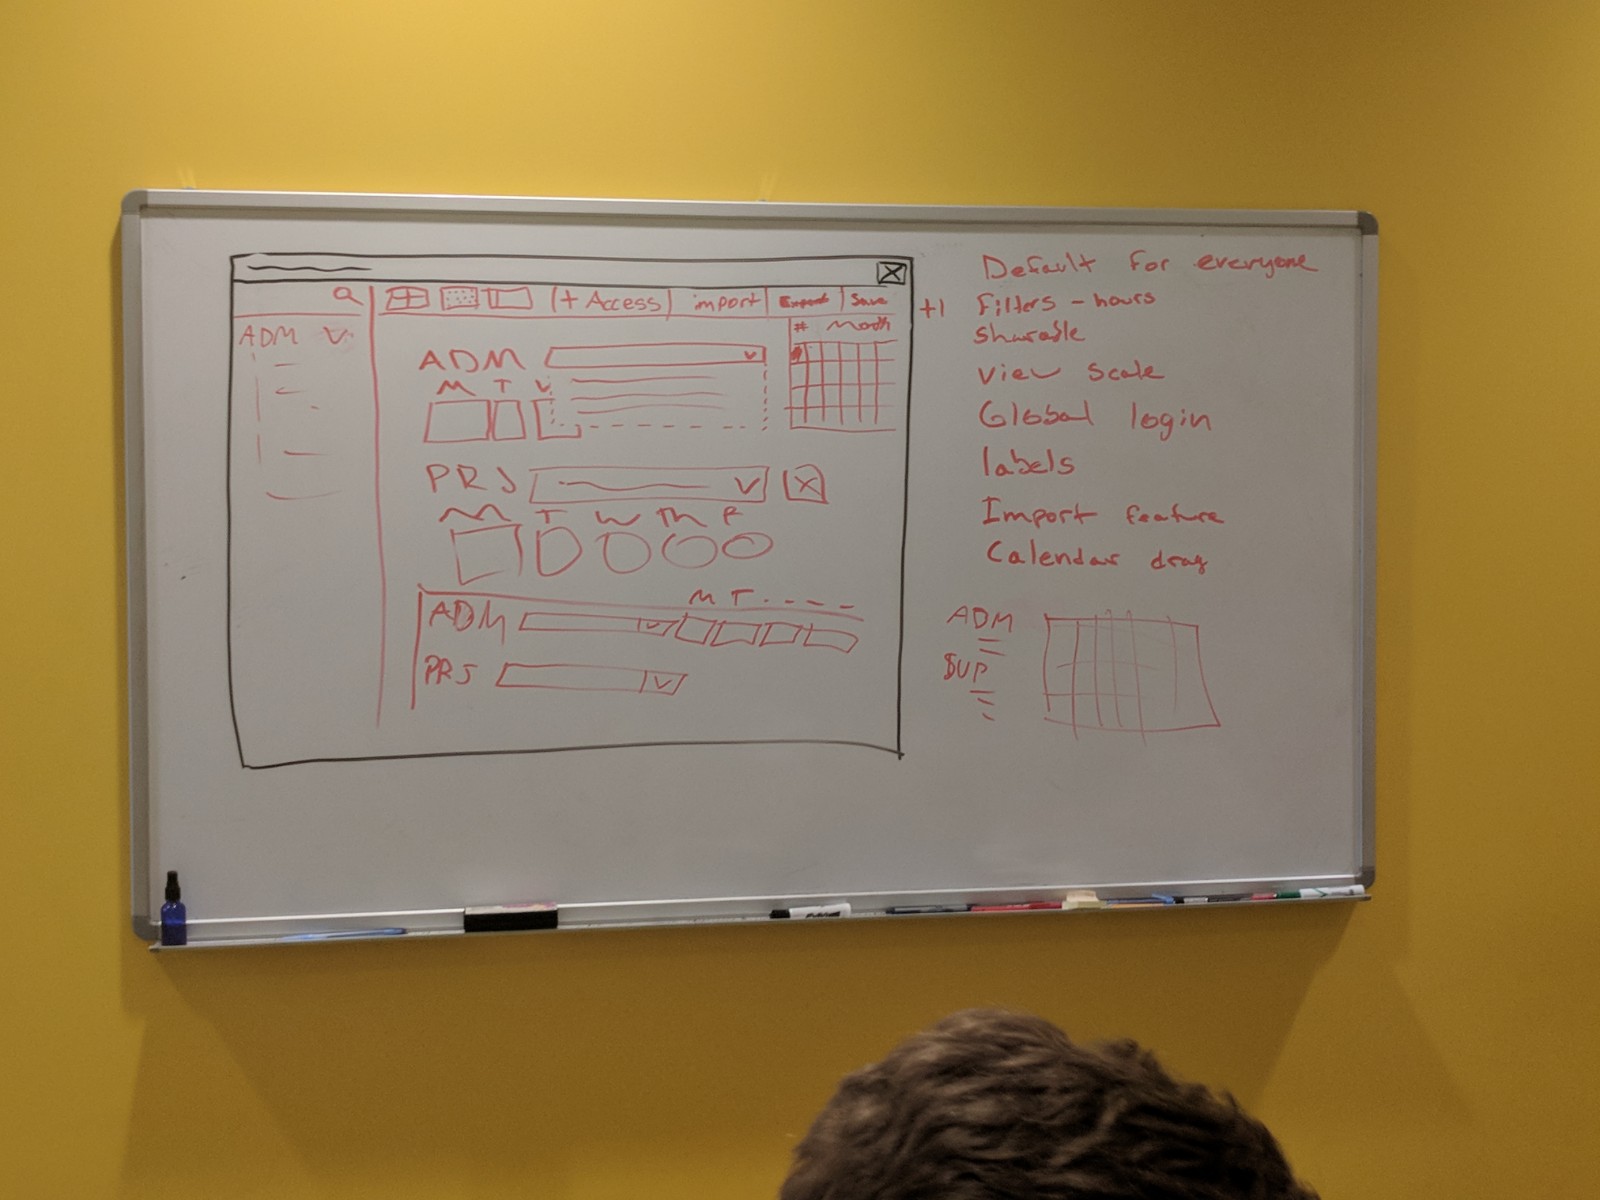 + Access import Export Save
# Month
ADM
ADM
M T
PRJ
M T W Th F
M T
ADM
PRJ
Default for everyone
+1 Filters - hours
Sharable
View scale
Global login
labels
Import feature
Calendar drag
ADM
SUP